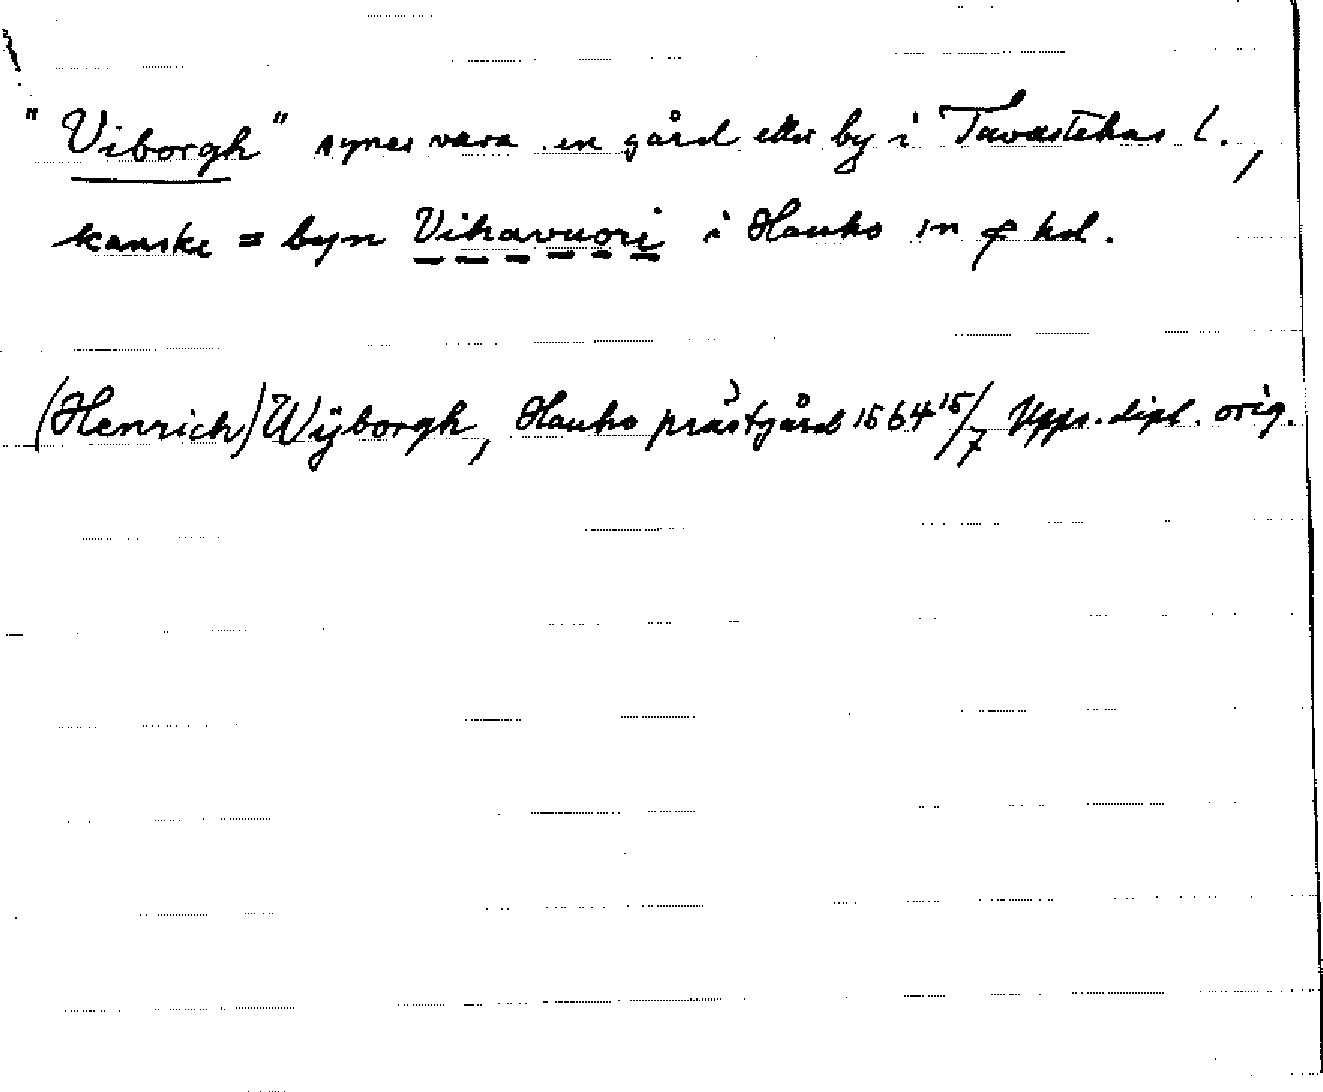 "Viborgh" synes vara en gård eller by i Tavastehus l.,
kanske = byn Vihavuori i Hauho sn o hd.
(Henrich) Wÿborgh, Hauho prästgård 1564 15/7 Upps. dipl. orig.